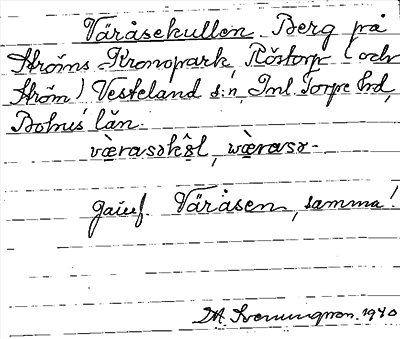 Väråsekullen. Berg på
Ströms Kronopark, Röstorp (och
Ström) Vesteland s:n, Inl. Torpe hd,
Bohus län.
værasəkŝl, wæ̀rasə-
Jämf. Väråsen, samma!
1940